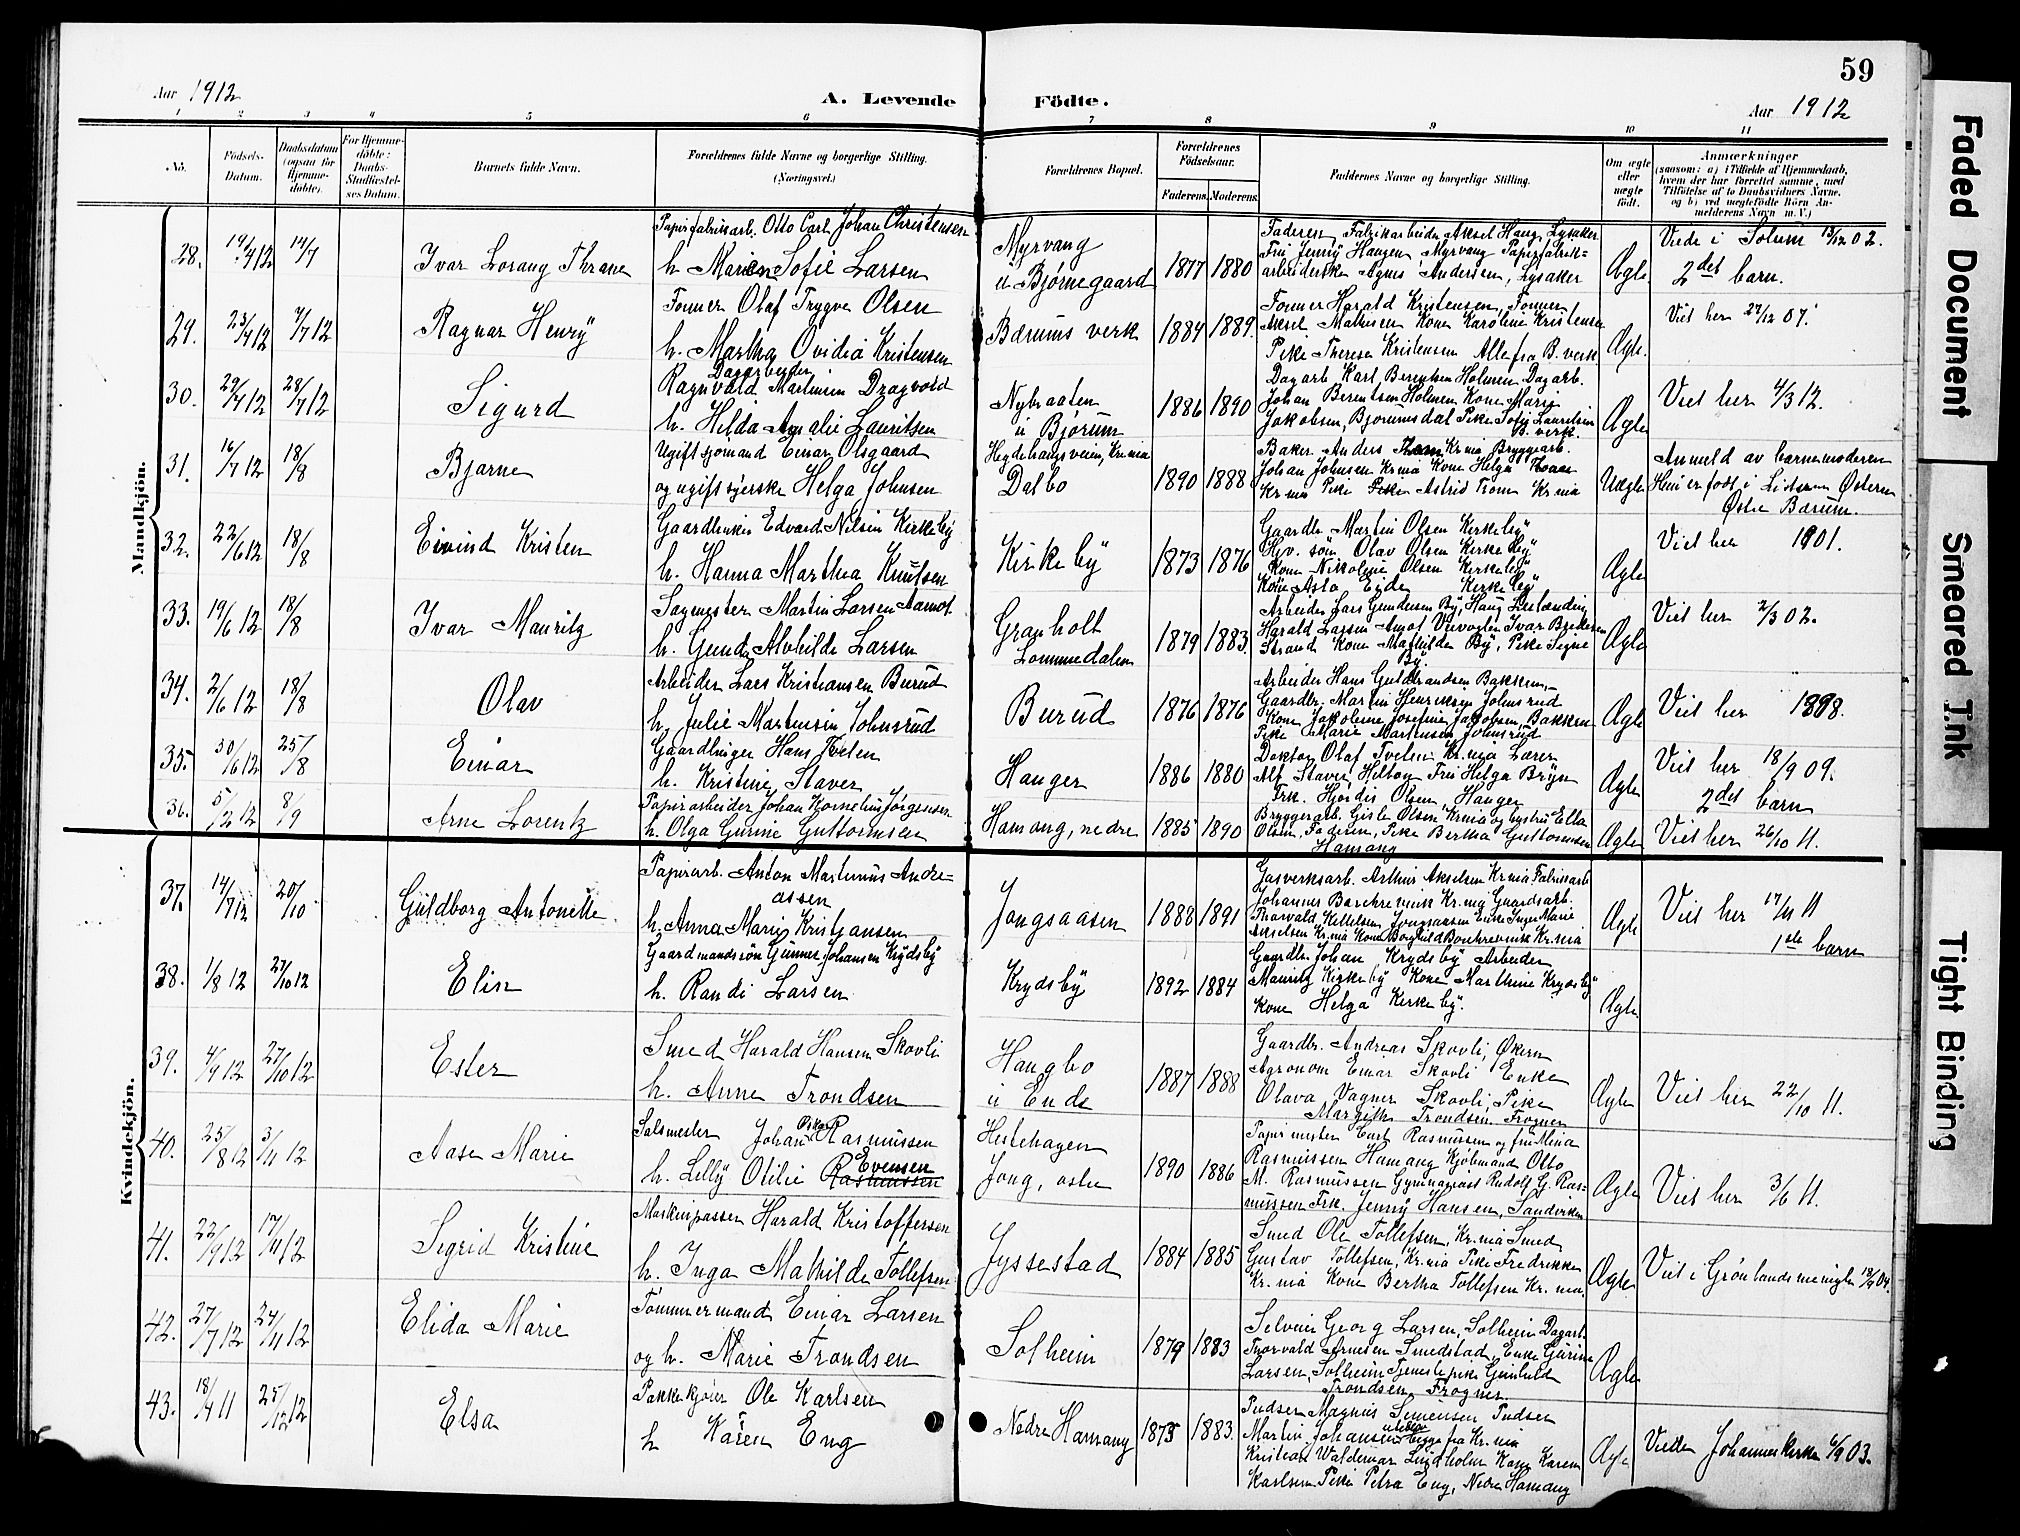 59
Aar 1912
A. Levende Födte.
Aar 1912
1 2 3 4 5 6 7 8 9 10 11
No.
Födsels-Datum.
Daabsdatum (ogsaa for Hjemme-döbte).
For Hjemme-döbte: Daabs-Stadfæstel-ses Datum.
Barnets fulde Navn.
Forældrenes fulde Navne og borgerlige Stilling. (Næringsvei.)
Forældrenes Bopæl.
Forældrenes Födselsaar.
Faderens. Moderens.
Faddernes Navne og borgerlige Stilling.
Om ægte eller uægte födt.
Anmærkninger
(saasom: a) i Tilfælde af Hjemmedaab, hvem der har forrettet samme, med Tilföielse af to Daabsvidners Navne, og b) ved uægtefödte Börn An-melderens Navn m. V.)
Mandkjön.
28. 19/4 12 14/7 Ivar Lorang Thrane
Papirfabrikarb. Otto Carl Johan Christensen
h. Maren Sofie Larsen
Myrvang
u Bjørnegaard
1877 1880
Faderen Fabrikarbeider Aksel Haug Lysaker
Fru Jenny Haugen Myrvang Papirfabrik-
arbeiderske Agnes Andersen, Lysaker
Ægte
Viede i Solum 13/12 02.
2det barn.
29. 23/4 12 7/7 12 Ragnar Henry
Former Olaf Trygve Olsen
h. Martha Ovidia Kristensen
Bærums verk 1884 1889.
Former Harald Kristensen, Former
Aksel Mathisen Kone Karoline Kristensen
Pike Therese Kristensen Alle fra B. verk
Ægte
Viet her 27/12 07.
30. 29/4 12 28/7 12 Sigurd
Dagarbeider
Ragnvald Martinius Dragvold
h. Hilda Amalie Lauritsen
Nybraaten
u Bjørum
1886 1890
Dagarb. Karl Berentsen Holmen Dagarb.
Johan Berentsen Holmen Kone Marie
Jakobsen, Bjorumsdal Pike Sofie Lauritsen
B. verk.
Ægte
Viet her 4/3 12.
31. 16/7 12 18/8 Bjarne
Ugift sjomand Einar Olsgaard
og ugift syerske Helga Johnsen
Hegdehaugsveien, Kr.nia
Dalbo
1890 1888
Baker Anders Kr.nia Bryggearb.
Johan Johnsen Kr.nia Kone Helga
Kr.nia Pike Astrid Kr.nia
Uægte
Anmeld av barnemoderen
Østre Bærum.
32. 22/6 12 18/8 Eivind Kristen
Gaardbruker Edvard Nilsen Kirkeby
h. Hanna Marthea Knutsen
Kirkeby 1873 1876
Gaardbr. Martin Olsen Kirkeby
Olav Olsen Kirkeby
Kone Nikoline Olsen Kirkeby
Kone Asta Eide Kirkeby
Ægte
Viet her 1901.
33. 19/6 12 18/8 Ivar Mauritz
Sagmester Martin Larsen Aamot
h. Gunda Alvhilde Larsen
Granholt
Lommedalen
1879 1883.
Arbeider Lars Gundersen By, Haug
Harald Larsen Amot Ivar
Strand Kone Mathilde By, Pike Signe
By.
Ægte
Viet her 2/3 02.
34. 2/6 12 18/8 Olav
Arbeider Lars Kristiansen Burud
h. Julie Martensen Johnsrud
Burud 1876 1876
Arbeider Hans Guldbrandsen Bakken,
Gaardbr. Martin Henriksen Johnsrud
Kone Jakobine Josefine Jakobsen, Bakken
Pike Marie Martensen Johnsrud
Ægte
Viet her 1898.
35. 30/6 12 25/8 Einar
Gaardbruger Hans Tveten
h. Kristine Staver
Hauger 1886 1880
Doktor Olaf Tveten Kr.nia Lærer
Alf Staver Hilton Fru Helga Bryn
Frk. Hjørdis Olsen Hauger
Ægte
Viet her 18/9 09.
2det barn
36. 5/2 12 8/9 Arne Lorentz
Papirarbeider Johan Kornelius Jørgensen
h. Olga Gurine Guttormsen
Hamang, nedre 1885 1890
Bryggerarb. Gisle Olsen Kr.nia og hustru Ella
Olsen, Faderen, Pike Bertha Guttormsen
Hamang
Ægte
Viet her 26/10 11.
Kvindekjön.
37. 14/7 12 20/10 Guldborg Antonette.
Papirarb. Anton Martinius Andre-
assen
h. Anna Marie Kristiansen
Jongsaasen 1888 1891
Gasverksarb. Arthur Akselsen Kr.nia Fabrikarb
Johannes Kr.nia Gaardsarb.
Thorvald Kittelsen Jongsaasen Enke Inger Marie
Akselsen Kr.nia Kone Borghild Kr.nia
Ægte
Viet her 17/11 11
1ste barn
38. 1/8 12 27/10 12 Elin
Gaardmandssön Gunnar Johansen Krydsby
h. Randi Larsen
Krydsby 1892 1884
Gaardbr. Johan Krydsby Arbeider
Mauritz Kirkeby Kone Marthine Krydsby
Kone Helga Kirkeby.
Ægte
39. 4/9 12 27/10 12 Ester
Smed Harald Hansen Skovli
h. Anne Trondsen
Haugbo
u Ende
1887 1888
Gaardbr. Andreas Skovli, Økern
Agronom Einar Skovli Enke
Olava Vagner Skovli, Pike
Margith Trondsen, Frogner
Ægte
Viet her 22/10 11.
40. 25/8 12 3/11 12 Aase Marie
Salsmester Johan Oskar Rasmussen
h. Lilly Otilie Rasmussen Evensen
Hestehagen
Jong, østre
1890 1886
Papirmester Carl Rasmussen og fru Mina
Rasmussen Hamang Kjøbmand Otto
M. Rasmussen Gymnasiast Rudolf G. Ras-
mussen Frk. Jenny Hansen, Sandviken
Ægte
Viet her 3/6 11.
41. 22/9 12 17/11 12 Sigrid Kristine
Maskinpasser Harald Kristoffersen
h. Inga Mathilde Tollefsen
Jyssestad 1884 1885
Smed Ole Tollefsen, Kr.nia Smed
Gustav Tollefsen, Kr.nia Pike Fredrikke
Kr.nia Kone Bertha Tollefsen Kr.nia
Ægte
Viet i Grønlands menighet 04.
42. 27/7 12 24/11 12 Elida Marie
Tømmermand Einar Larsen
og h. Marie Trondsen
Solheim 1879 1883
Selveier Georg Larsen, Solheim Dagarb.
Thorvald Arnesen Smedstad, Enke Gurine
Larsen, Solheim Tjenestepike Gunhild
Trondsen Frogner
Ægte
43. 18/9 11 25/12 12 Elsa
Pakkekjører Ole Karlsen
h Karen Eng
Nedre Hamang 1875 1883.
Pudser Magnus Simensen Pudser
Martin Johansen begge fra Kr.nia
Kristian Waldemar Lindholm Kone Karen
Karlsen Pike Petra Eng, Nedre Hamang
Ægte
Viet Johannes kirke 6/9 03.
Faded Document
Smeared Ink
Tight Binding